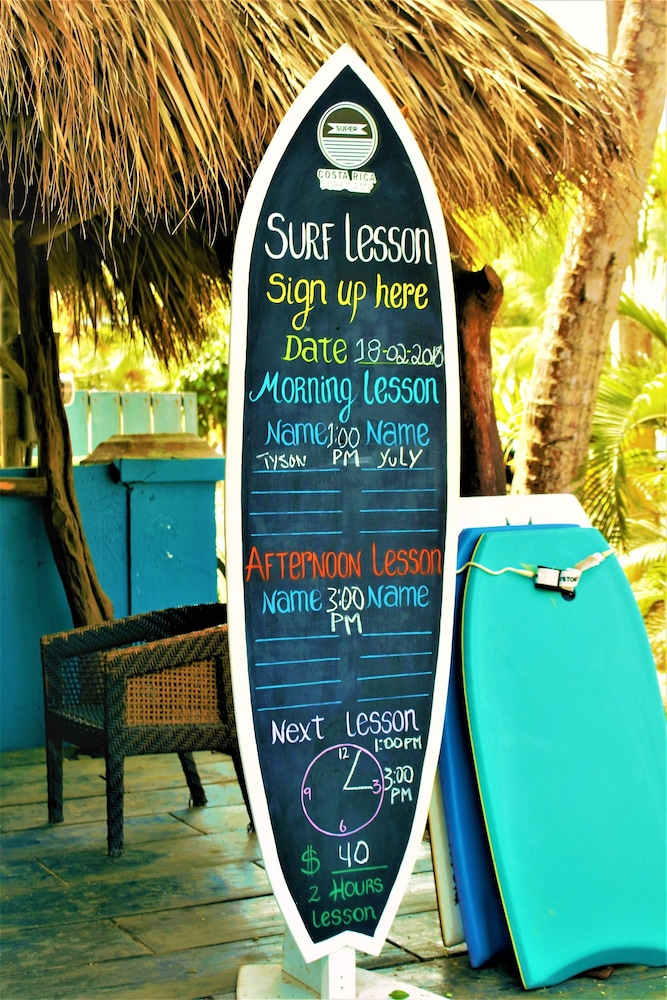 SUPER
COSTA RICA
SURF CAMP
SURF LESSON
Sign up here
DATE 18-02-2018
MORNING LESSON
NAME 1:00 PM NAME
TYSON YULY
AFTERNOON LESSON
NAME 3:00 PM NAME
NEXT LESSON
1:00PM
3:00 PM
12
9 3
6
$ 40
2 HOURS
LESSON